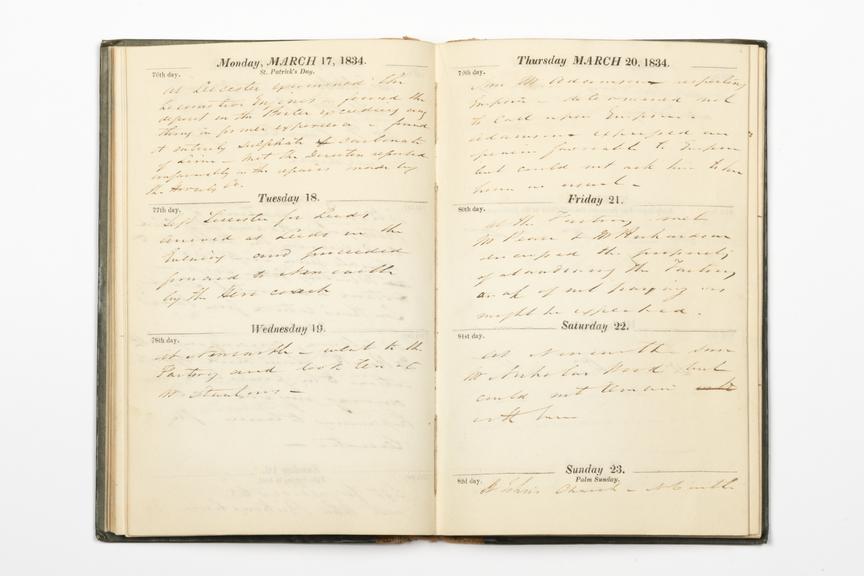 Monday, MARCH 17, 1834.
St. Patrick's Day.
76th day.
At Leicester examined the
Locomotive Engines – found the
deposit in the Boiler exceeding any
thing in former experience – found
it entirely sulphate & Carbonate
of Lime – met the Directors reported
on the repairs made by
the Co.
Tuesday 18.
77th day.
Left Leicester for Leeds
arrived at Leeds in the
Evening – and proceeded
forward to Newcastle
by the coach
Wednesday 19.
78th day.
At Newcastle – went to the
Factory and took tea at
Mr
Thursday MARCH 20, 1834.
79th day.
Mr Adamson respecting
– determined not
to call upon
Adamson expressed an
opinion favorable to
but could not ask him
as usual –
Friday 21.
80th day.
At the Factory – met
Mr & Mr Richardson
the propriety
of abandoning the Factory
of not paying as
might be expected.
Saturday 22.
81st day.
At Newcastle saw
Mr Nicholas Wood but
could not remain
with him
Sunday 23.
Palm Sunday.
82d day.
St Church – Newcastle